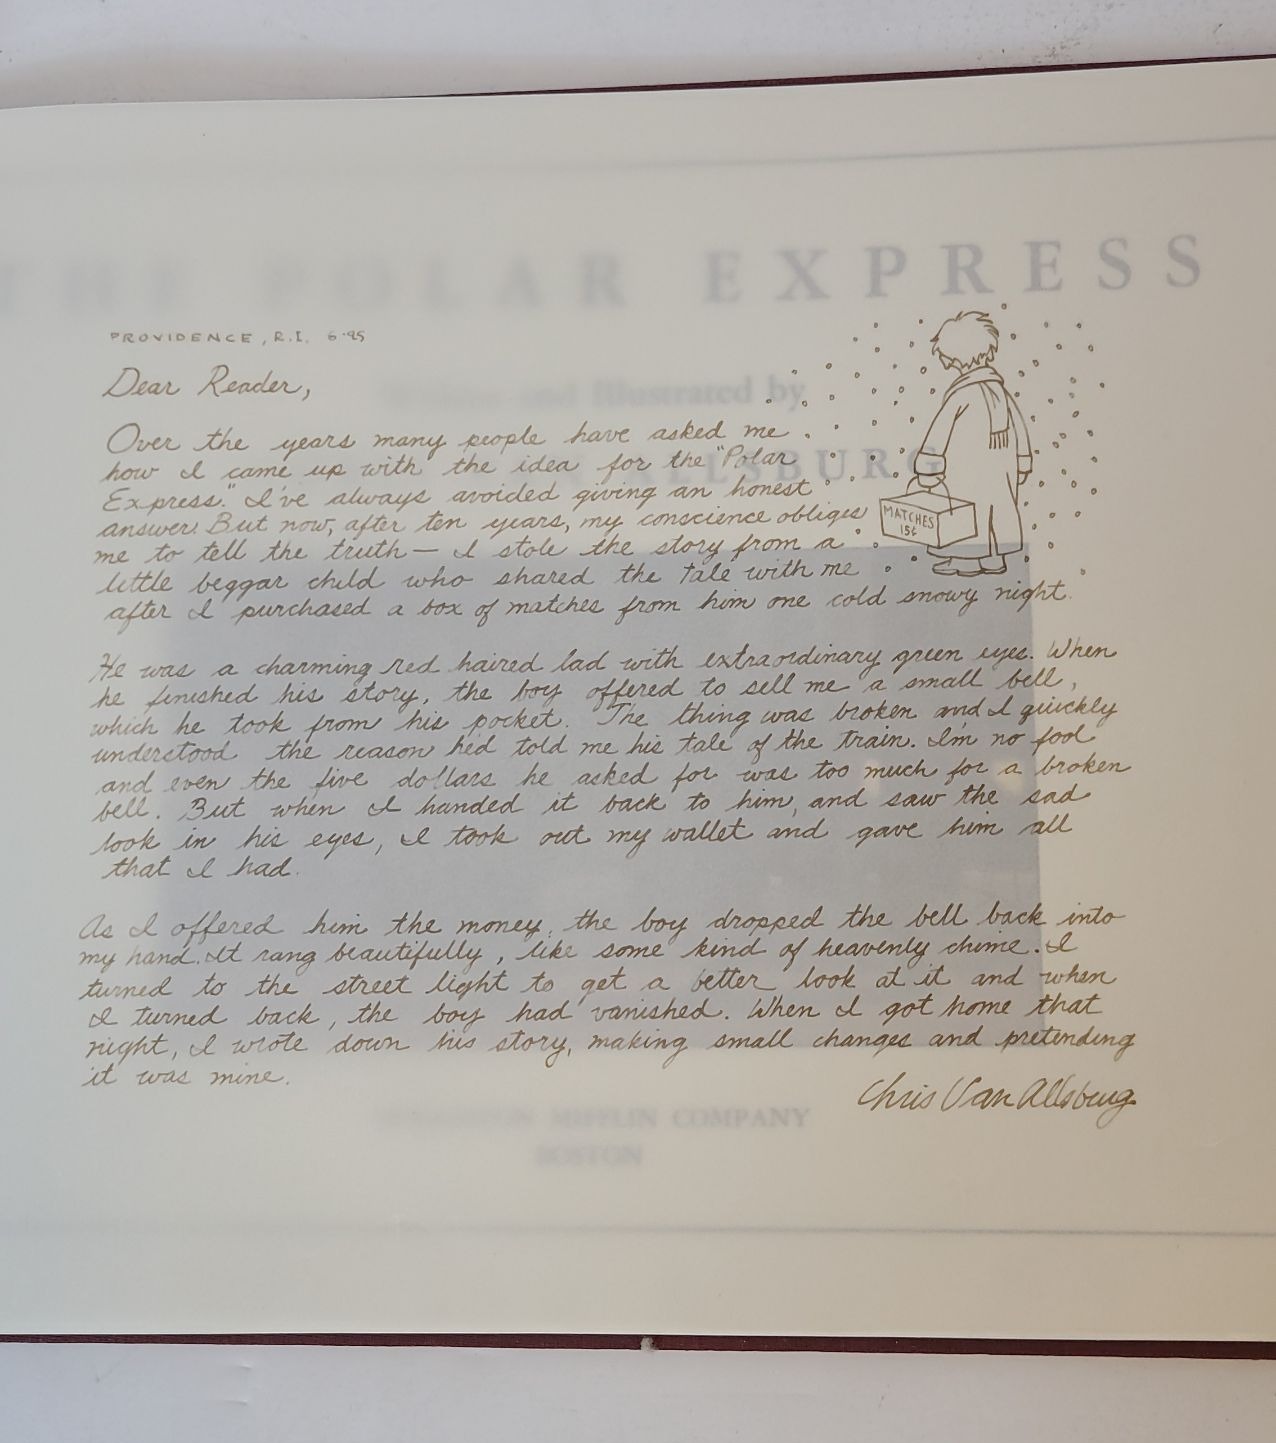 THE POLAR EXPRESS
PROVIDENCE, R.I. 6·95
Dear Reader,
Written and Illustrated by
Over the years many people have asked me
how I came up with the idea for the "Polar
ALLSBURG
Express." I've always avoided giving an honest
answer. But now, after ten years, my conscience obliges
me to tell the truth — I stole the story from a
little beggar child who shared the tale with me
after I purchased a box of matches from him one cold snowy night.
MATCHES
15¢
He was a charming red haired lad with extraordinary green eyes. When
he finished his story, the boy offered to sell me a small bell,
which he took from his pocket. The thing was broken and I quickly
understood the reason he'd told me his tale of the train. I'm no fool
and even the five dollars he asked for was too much for a broken
bell. But when I handed it back to him, and saw the sad
look in his eyes, I took out my wallet and gave him all
that I had.
As I offered him the money, the boy dropped the bell back into
my hand. It rang beautifully, like some kind of heavenly chime. I
turned to the street light to get a better look at it and when
I turned back, the boy had vanished. When I got home that
night, I wrote down his story, making small changes and pretending
it was mine.
Chris Van Allsburg
MIFFLIN COMPANY
BOSTON